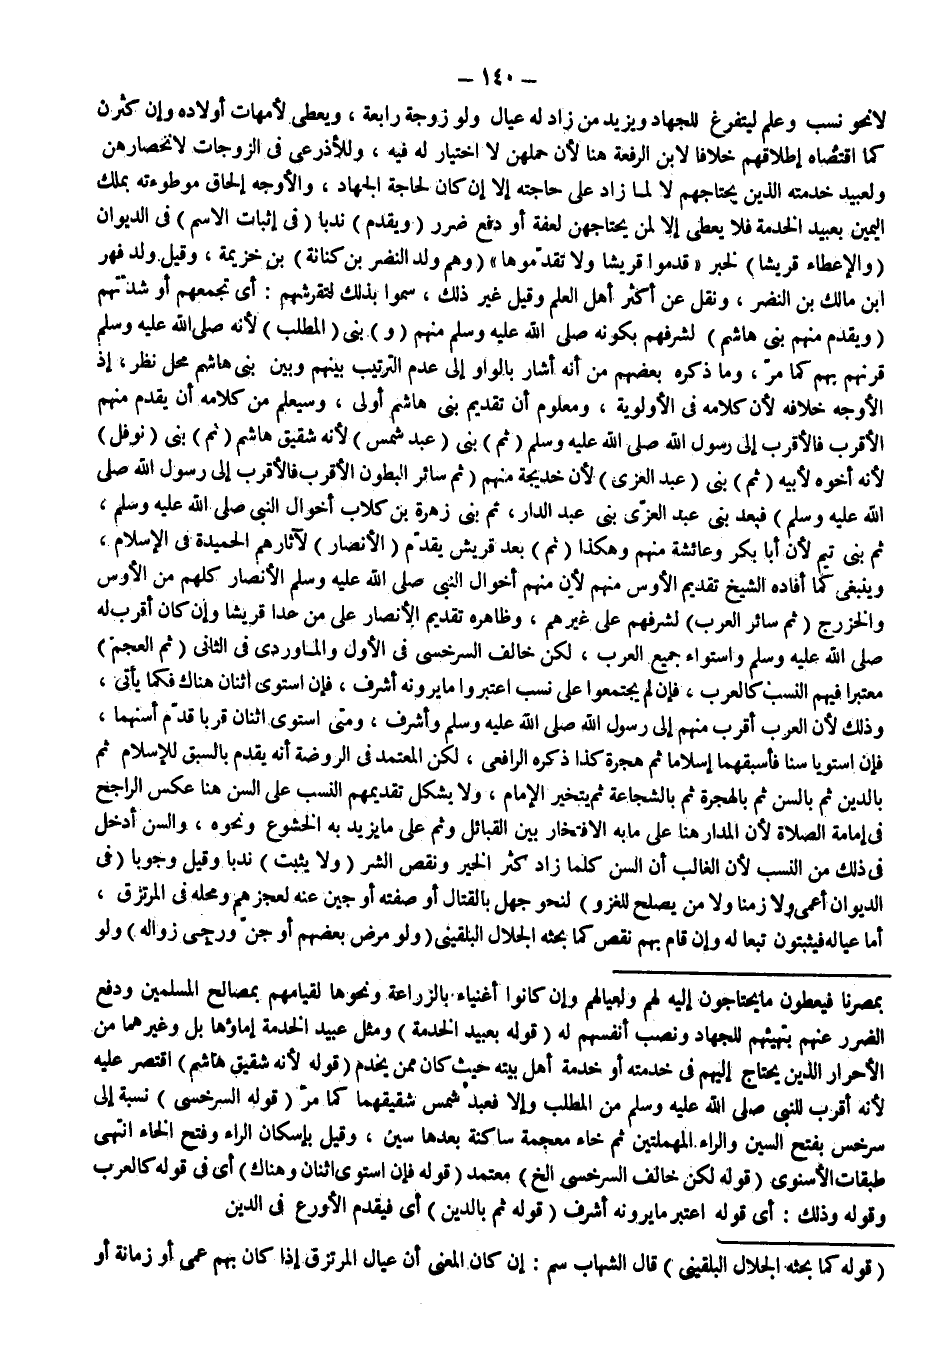 – ١٤٠ –
لانحو نسب وعلم ليتفرغ للجهاد ويزيد من زاد له عيال ولو زوجة رابعة ، ويعطى لأمهات أولاده وإن كثرن
كما اقتضاه إطلاقهم خلافا لابن الرفعة هنا لأن حملهن لا اختيار له فيه ، وللأذرعى فى الزوجات لانحصارهن
ولعبيد خدمته الذين يحتاجهم لا لما زاد على حاجته إلا إن كان لحاجة الجهاد ، والأوجه إلحاق موطوءته بملك
اليمين بعبيد الخدمة فلا يعطى إلا لمن يحتاجهن لعفة أو دفع ضرر ( ويقدم ) ندبا ( فى إثبات الاسم ) فى الديوان
( والإعطاء قريشا ) لخبر « قدموا قريشا ولا تقدّموها » ( وهم ولد النضر بن كنانة ) بن خزيمة ، وقيل ولد فهر
ابن مالك بن النضر ، ونقل عن أكثر أهل العلم وقيل غير ذلك ، سموا بذلك لتقرشهم : أى تجمعهم أو شدّتهم
( ويقدم منهم بنى هاشم ) لشرفهم بكونه صلى الله عليه وسلم منهم ( و ) بنى ( المطلب ) لأنه صلى الله عليه وسلم
قرنهم بهم كما مرّ ، وما ذكره بعضهم من أنه أشار بالواو إلى عدم الترتيب بينهم وبين بنى هاشم محل نظر ، إذ
الأوجه خلافه لأن كلامه فى الأولوية ، ومعلوم أن تقديم بنى هاشم أولى ، وسيعلم من كلامه أن يقدم منهم
الأقرب فالأقرب إلى رسول الله صلى الله عليه وسلم ( ثم ) بنى ( عبد شمس ) لأنه شقيق هاشم ( ثم ) بنى ( نوفل )
لأنه أخوه لأبيه ( ثم ) بنى ( عبد العزى ) لأن خديجة منهم ( ثم سائر البطون الأقرب فالأقرب إلى رسول الله صلى
الله عليه وسلم ) فبعد بنى عبد العزّى بنى عبد الدار ، ثم بنى زهرة بن كلاب أخوال النبى صلى الله عليه وسلم ،
ثم بنى تيم لأن أبا بكر وعائشة منهم وهكذا ( ثم ) بعد قريش يقدّم ( الأنصار ) لآثارهم الحميدة فى الإسلام ،
وينبغى كما أفاده الشيخ تقديم الأوس منهم لأن منهم أخوال النبى صلى الله عليه وسلم الأنصار كلهم من الأوس
والخزرج ( ثم سائر العرب ) لشرفهم على غيرهم ، وظاهره تقديم الأنصار على من عدا قريشا وإن كان أقرب له
صلى الله عليه وسلم واستواء جميع العرب ، لكن خالف السرخسى فى الأول والماوردى فى الثانى ( ثم العجم )
معتبرا فيهم النسب كالعرب ، فإن لم يجتمعوا على نسب اعتبروا مايرونه أشرف ، فإن استوى اثنان هناك فكما يأتى ،
وذلك لأن العرب أقرب منهم إلى رسول الله صلى الله عليه وسلم وأشرف ، ومتى استوى اثنان قربا قدّم أسنهما ،
فإن استويا سنا فأسبقهما إسلاما ثم هجرة كذا ذكره الرافعى ، لكن المعتمد فى الروضة أنه يقدم بالسبق للإسلام ثم
بالدين ثم بالسن ثم بالهجرة ثم بالشجاعة ثم يتخير الإمام ، ولا يشكل تقديمهم النسب على السن هنا عكس الراجح
فى إمامة الصلاة لأن المدار هنا على مابه الافتخار بين القبائل وثم على مايزيد به الخشوع ونحوه ، والسن أدخل
فى ذلك من النسب لأن الغالب أن السن كلما زاد كثر الخير ونقص الشر ( ولا يثبت ) ندبا وقيل وجوبا ( فى
الديوان أعمى ولا زمنا ولا من يصلح للغزو ) لنحو جهل بالقتال أو صفته أو جبن عنه لعجزهم ومحله فى المرتزق ،
أما عياله فيثبتون تبعا له وإن قام بهم نقص كما بحثه الجلال البلقينى ( ولو مرض بعضهم أو جنّ ورجى زواله ) ولو
بمصرنا فيعطون مايحتاجون إليه لهم ولعيالهم وإن كانوا أغنياء بالزراعة ونحوها لقيامهم بمصالح المسلمين ودفع
الضرر عنهم بتهيئهم للجهاد ونصب أنفسهم له ( قوله بعبيد الخدمة ) ومثل عبيد الخدمة إماؤها بل وغيرهما من
الأحرار الذين يحتاج إليهم فى خدمته أو خدمة أهل بيته حيث كان ممن يخدم ( قوله لأنه شقيق هاشم ) اقتصر عليه
لأنه أقرب للنبى صلى الله عليه وسلم من المطلب وإلا فعبد شمس شقيقهما كما مرّ ( قوله السرخسى ) نسبة إلى
سرخس بفتح السين والراء المهملتين ثم خاء معجمة ساكنة بعدها سين ، وقيل بإسكان الراء وفتح الخاء انتهى
طبقات الأسنوى ( قوله لكن خالف السرخسى الخ ) معتمد ( قوله فإن استوى اثنان وهناك ) أى فى قوله كالعرب
وقوله وذلك : أى قوله اعتبر مايرونه أشرف ( قوله ثم بالدين ) أى فيقدم الأورع فى الدين
( قوله كما بحثه الجلال البلقينى ) قال الشهاب سم : إن كان المعنى أن عيال المرتزق إذا كان بهم عمى أو زمانة أو